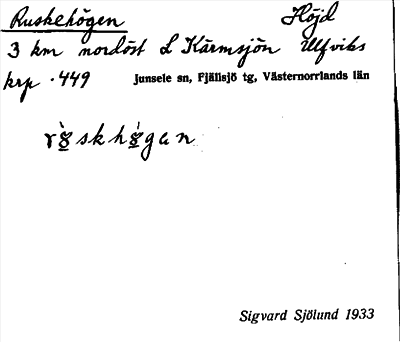 Ruskehögen Höjd
3 km nordöst L Kärmsjön Ulfviks
krp. 449 Junsele sn, Fjällsjö tg, Västernorrlands län
Sigvard Sjölund 1933